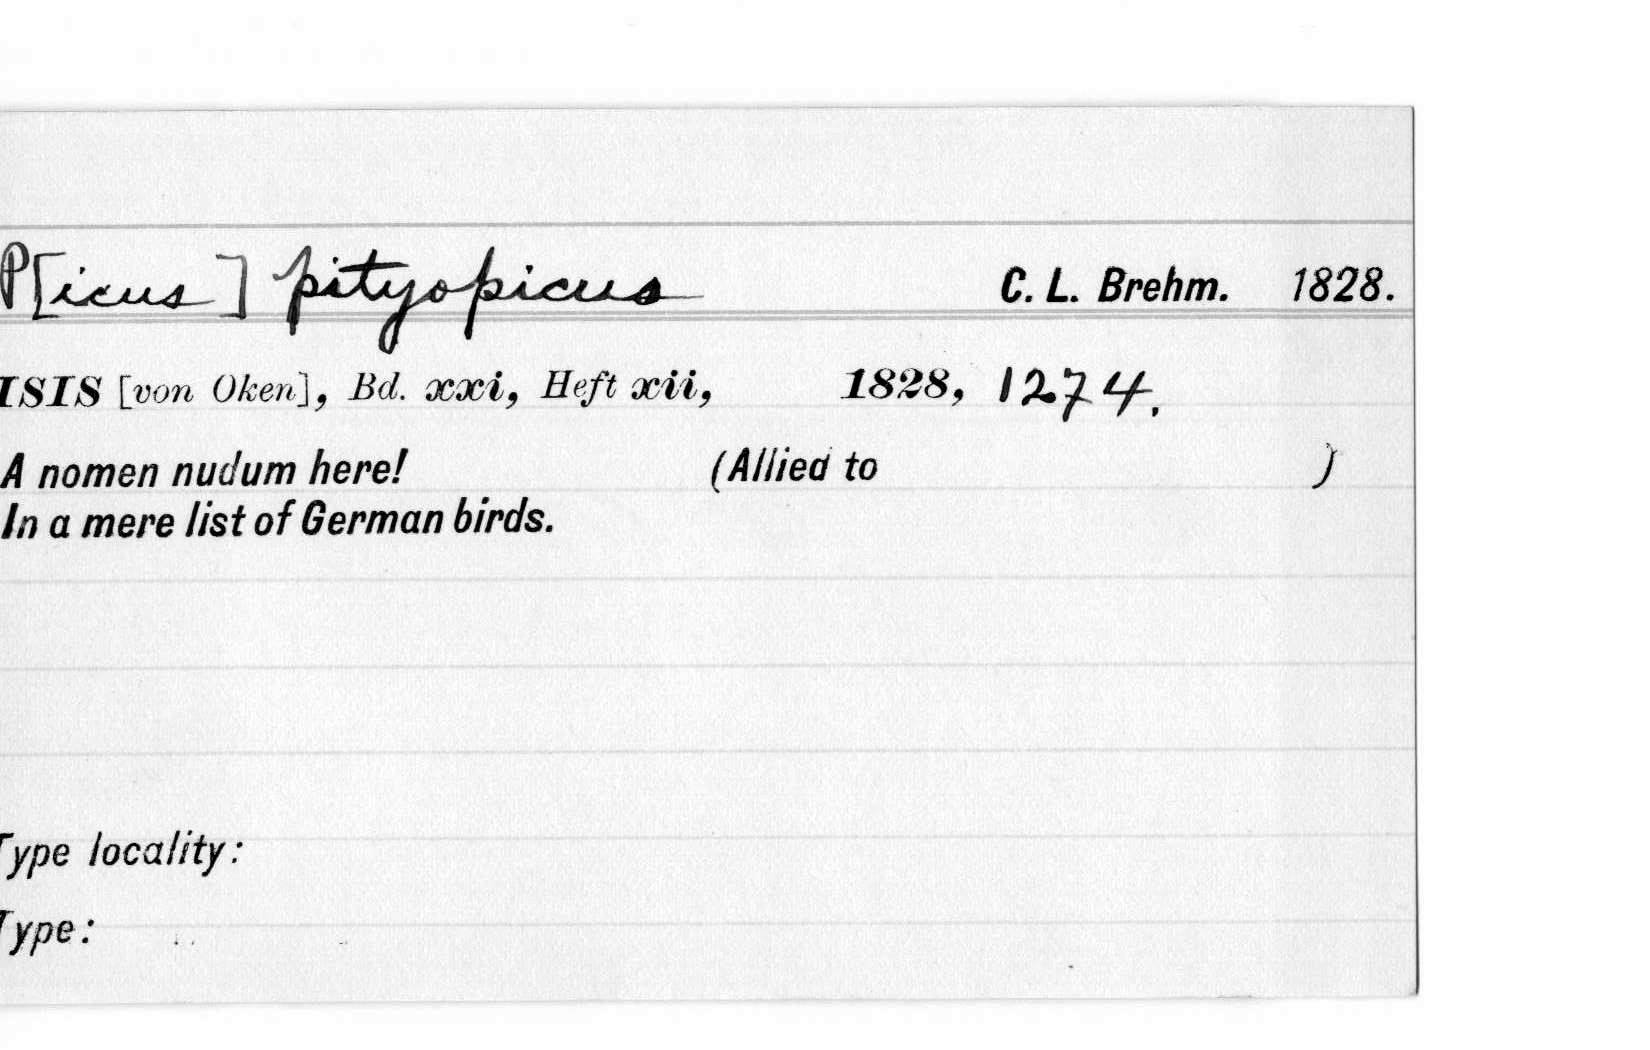 P[icus] pityopicus C. L. Brehm. 1828.
ISIS [von Oken], Bd. xxi, Heft xii, 1828, 1274.
A nomen nudum here! (Allied to )
In a mere list of German birds.
Type locality:
Type: